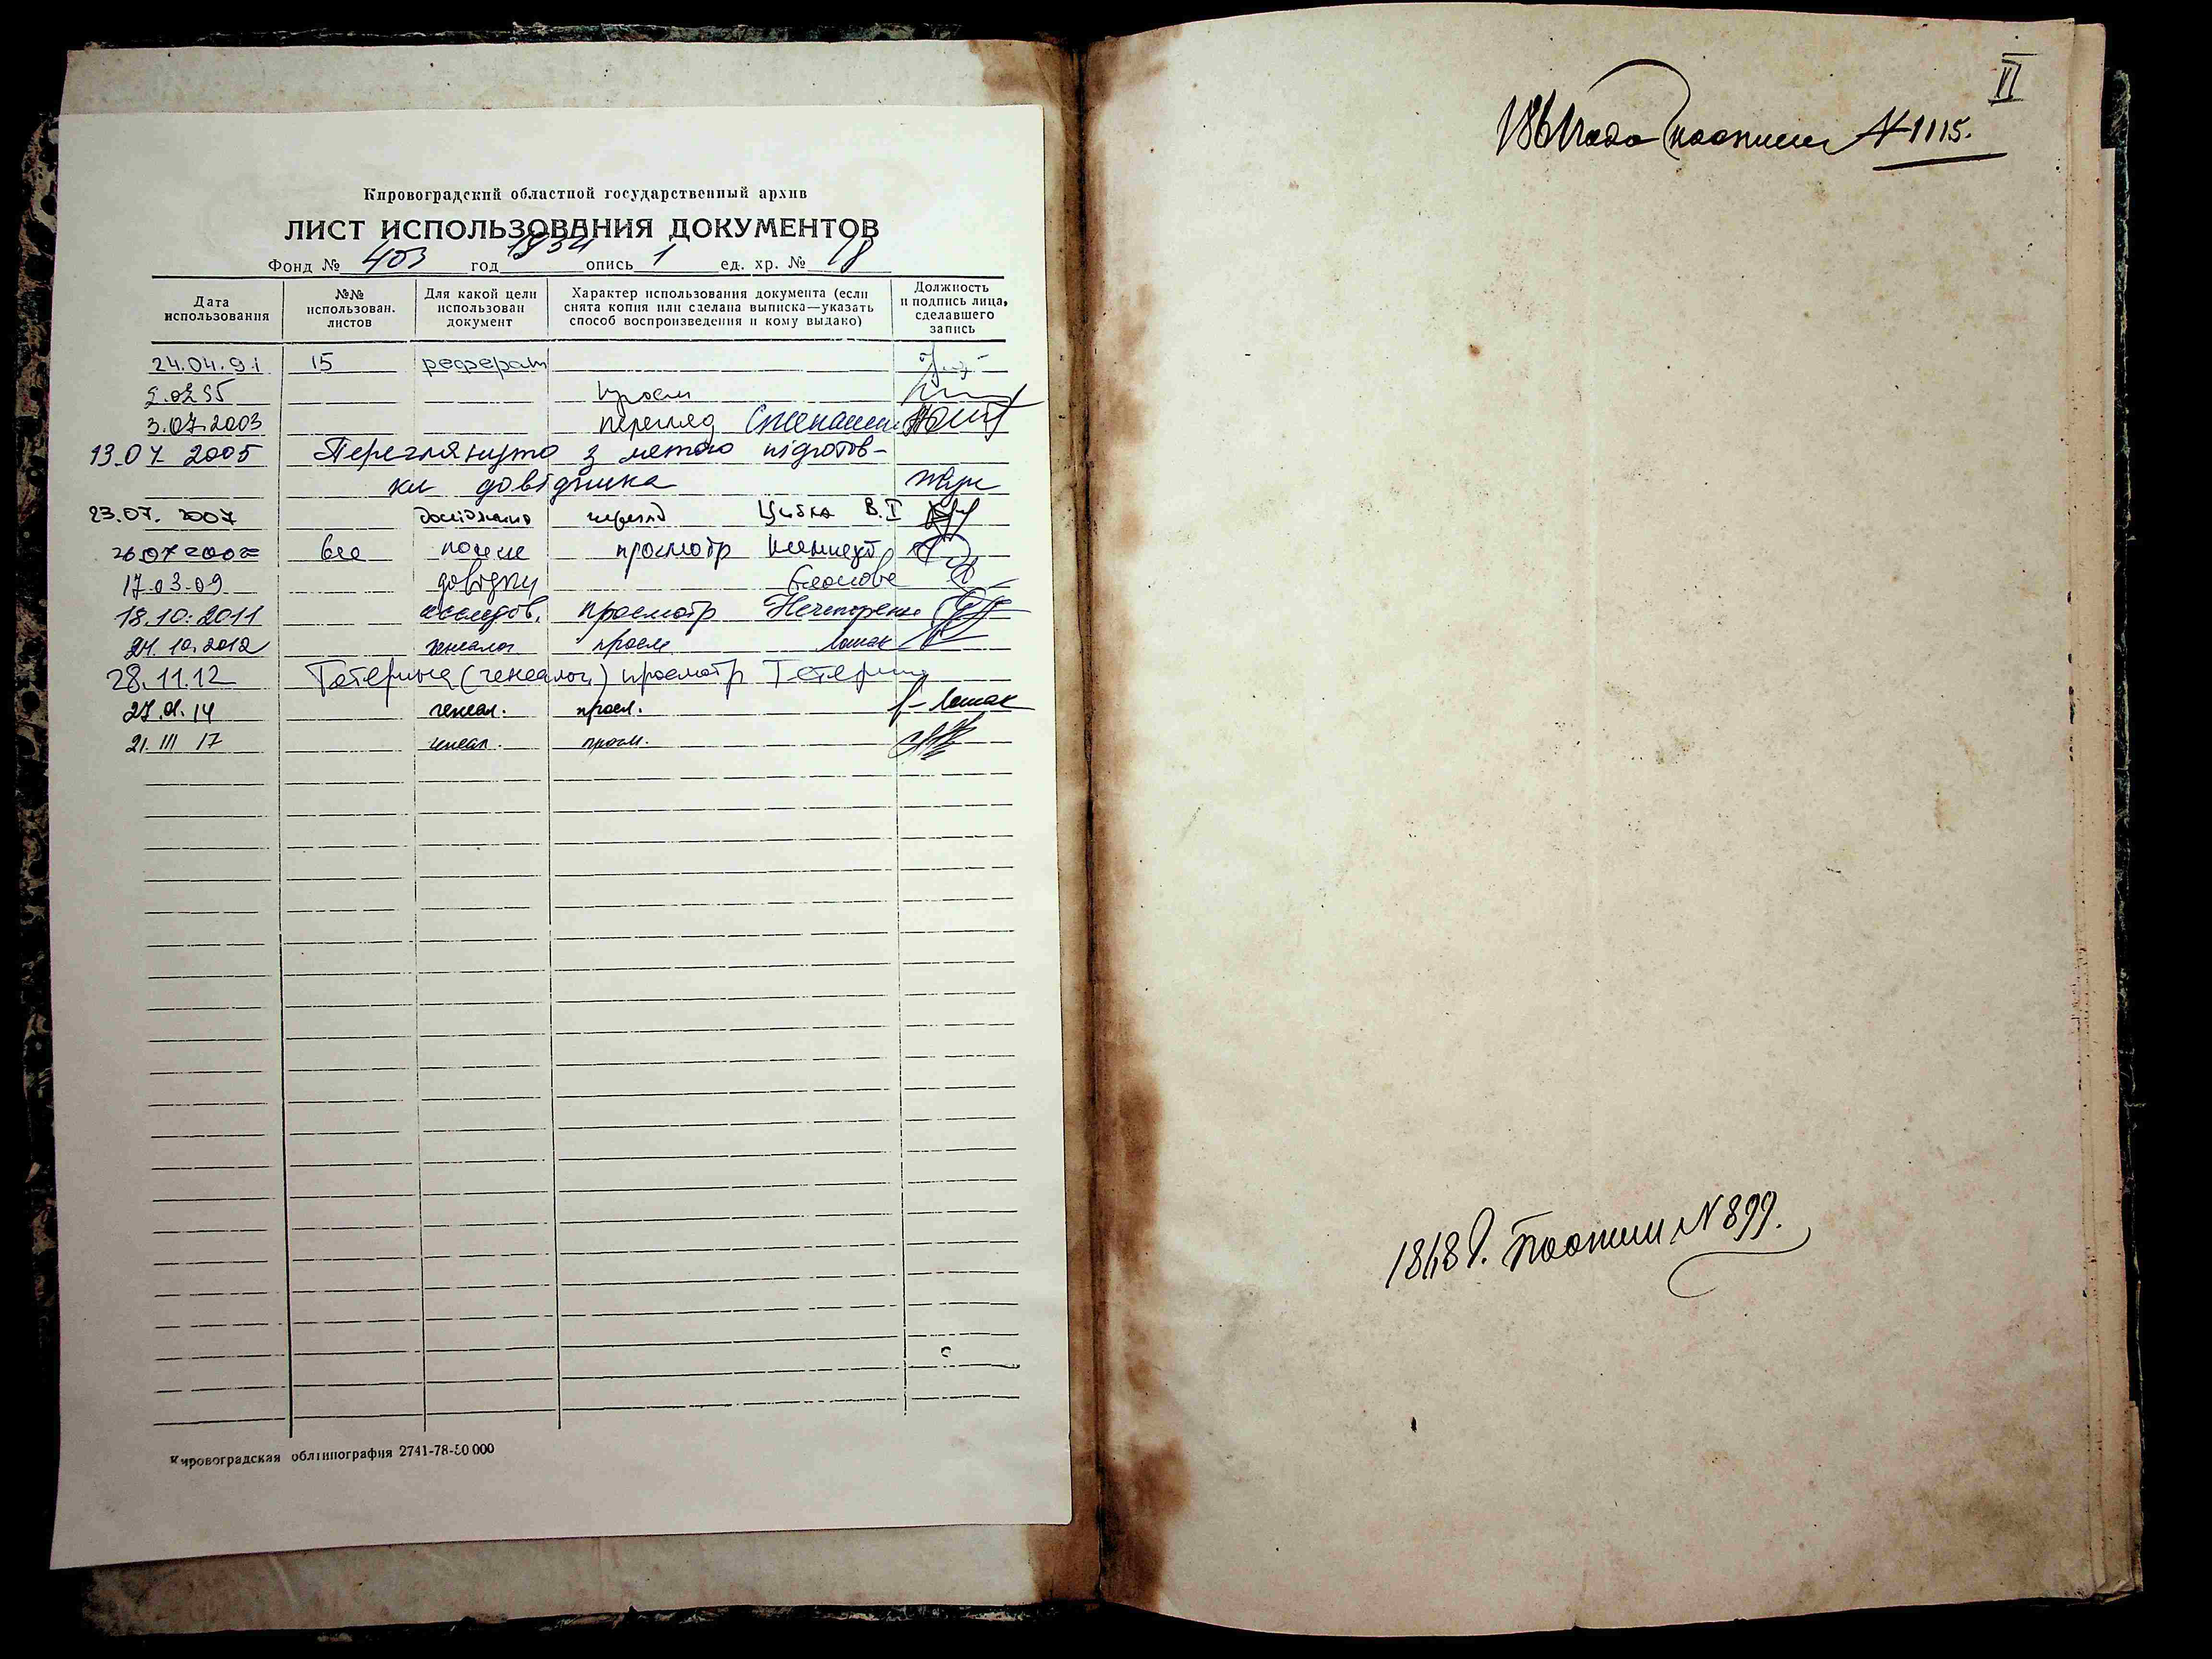 Кировоградский областной государственный архив
ЛИСТ ИСПОЛЬЗОВАНИЯ ДОКУМЕНТОВ
Фонд № 403 год 1834 опись 1 ед. хр. № 18
Дата использования
№№ использован. листов
Для какой цели использован документ
Характер использования документа (если снята копия или сделана выписка—указать способ воспроизведения и кому выдано)
Должность и подпись лица, сделавшего запись
24.04.91 15 реферат
просм
3.07.2003 перегляд
13.07.2005 Переглянуто з метою підготов-
ки довідника
23.07.2007 перегляд Цибка В.І
26.07 все просмотр
17.03.09 довідку
18.10.2011 исследов. просмотр Нечипоренко
24.10.2012 генеалог просм Лошак
28.11.12 (генеалог) просмотр
27. 14 генеал. просм. Лошак
21. III 17 генеал. просм.
Кировоградская облтипография 2741-78-50 000
VI
1861 года по описи № 1115.
по описи № 899.